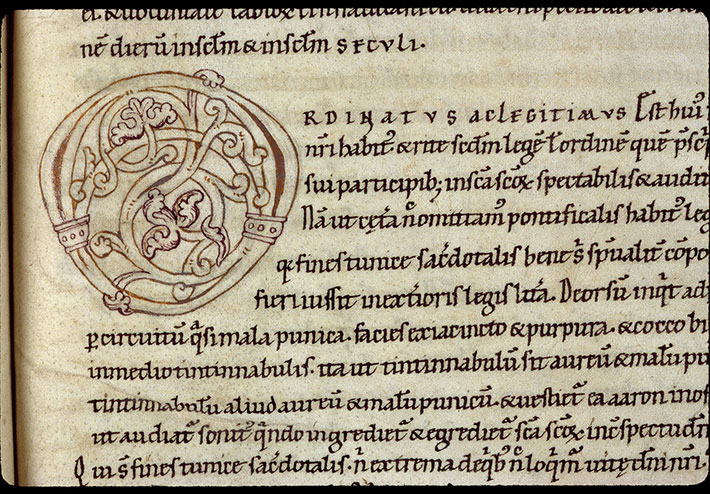 nē dierū inscl̄m & inscl̄m SECVLI.
ORDINATVS AC LEGITIMVS Est hui᷒
nr̄i habit᷒ & rite scd̄m legē l̄ ordinē quē p̄scr̄
sui participib; insc̄a scōꝝ spectabilis & audi
Nā ut cęt̄a n̄ omittam᷒ pontificalis habit᷒ leg
fines tunice sac̄dotalis bene spūalit̄ cōpo
fieri iussit in ext̄ioris legis litt̄a. Deorsū inq̇t ad
ꝑ circuitū q̄si mala punica. facies ex iacincto & purpura. & cocco bi
in medio tintinnabulis. ita ut tintinnabulū sit aureū & malū pu
tintinnabulū aliud aureū & malū punicū. & uestiet᷒ ea aaron in of
ut audiat᷒ sonit᷒ q̄ndo ingrediet᷒ & egrediet᷒ sc̄a scōꝝ inc̄spectu dn̄i
Qui s̄ fines tunice sac̄dotalis. n̄ extrema de q̇b; n̄c loq̇m᷒ uitę dn̄i nr̄i